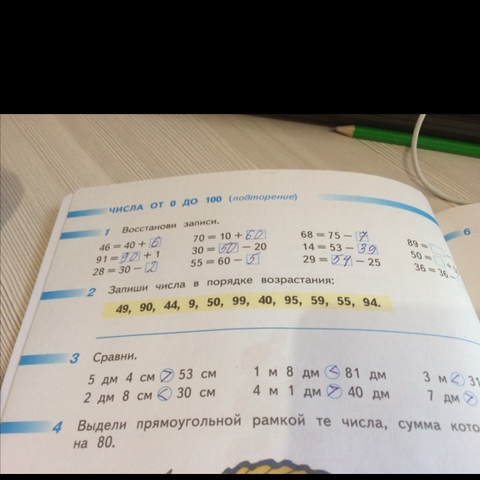 ЧИСЛА ОТ 0 ДО 100 (повторение)
1 Восстанови записи.
46 = 40 + 6 70 = 10 + 60 68 = 75 - 7 89 =
91 = 90 + 1 30 = 50 - 20 14 = 53 - 39 50 =
28 = 30 - 2 55 = 60 - 5 29 = 54 - 25 36 = 36
2 Запиши числа в порядке возрастания:
49, 90, 44, 9, 50, 99, 40, 95, 59, 55, 94.
3 Сравни.
5 дм 4 см > 53 см 1 м 8 дм < 81 дм 3 м < 31
2 дм 8 см < 30 см 4 м 1 дм > 40 дм 7 дм >
4 Выдели прямоугольной рамкой те числа, сумма кото
на 80.
6